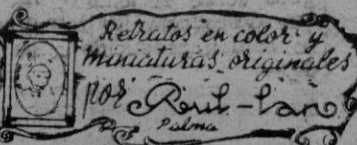 Retratos en color y
miniaturas originales
por Roul-lan
Palma